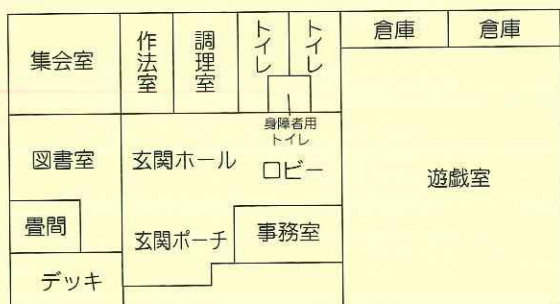 集会室
作法室
調理室
トイレ
トイレ
倉庫
倉庫
身障者用
トイレ
図書室
玄関ホール
ロビー
遊戯室
畳間
玄関ポーチ
事務室
デッキ